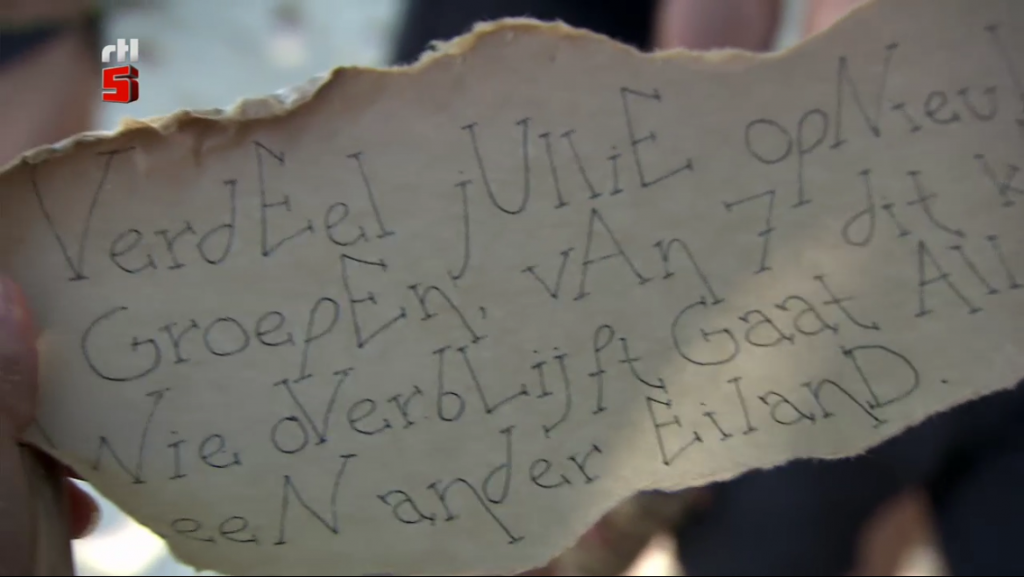 rtl
5
VerdEel jUlliE opNieu
GroepEn, vAn 7 dit k
Nie oVerbLijft Gaat All
eeN ander EilanD.